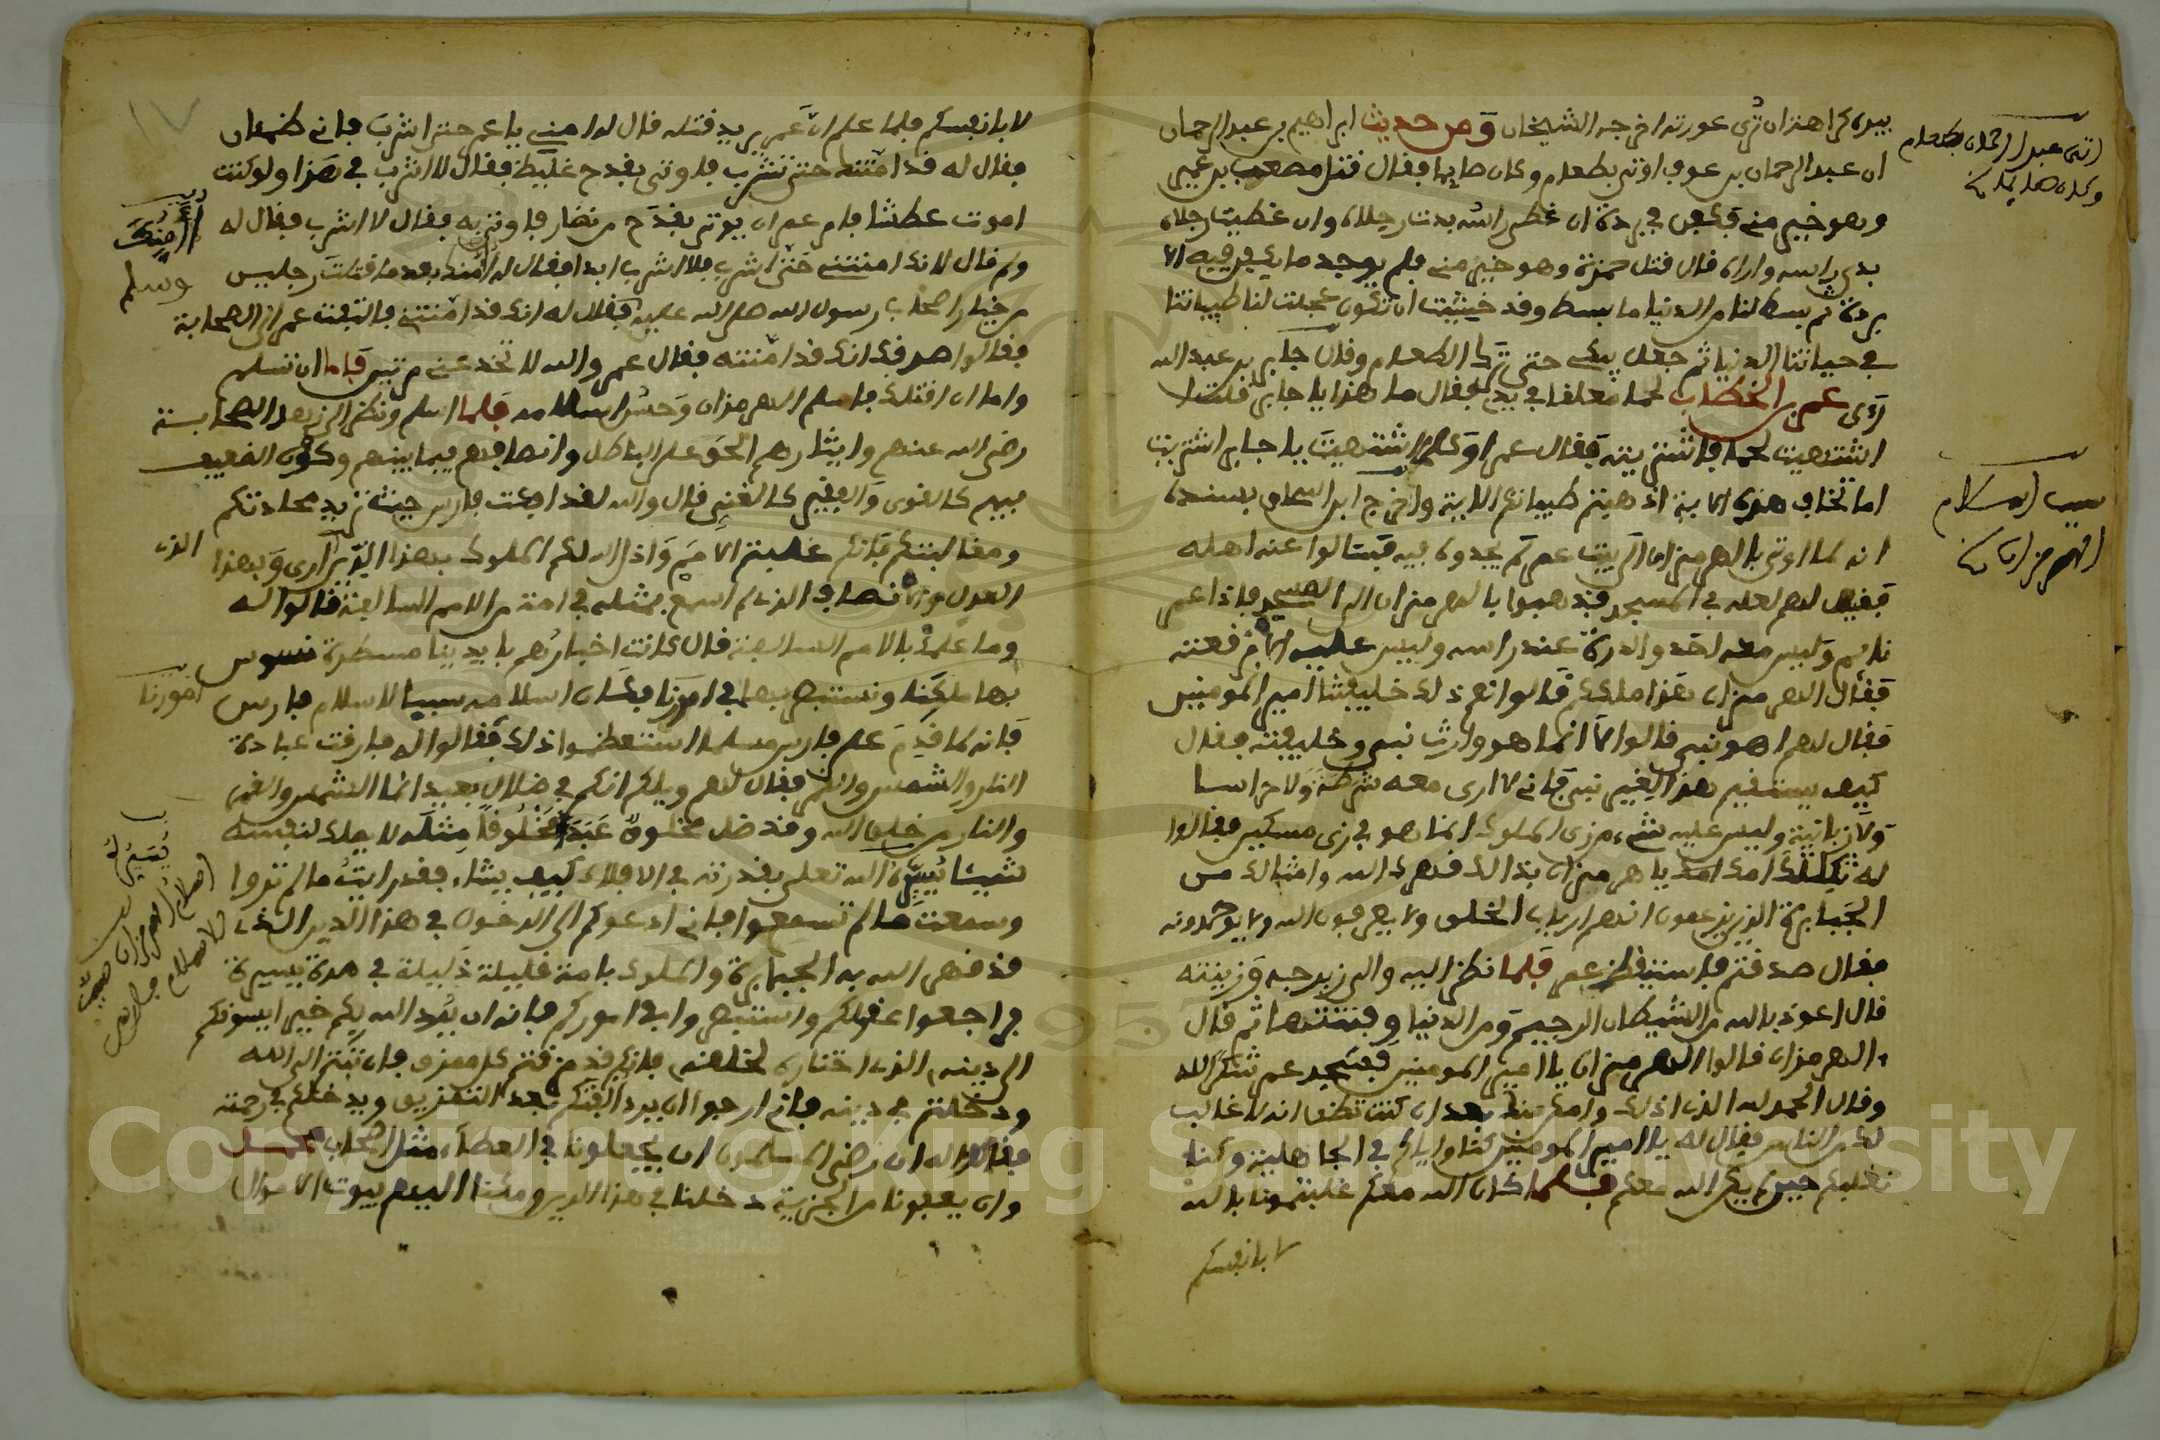 بيده كراهة ان ترى عورته اخرجه الشيخان ومن حديث ابراهيم بن عبد الرحمان
ان عبد الرحمان بن عوف اوتي بطعام وكان صايما فقال قتل مصعب بن عمير
وهو خير مني فكفن في بردة ان غطي راسه بدت رجلاه وان غطيت رجلاه
بدى راسه واراه قال قتل حمزة وهو خير مني فلم يوجد ما يكفن فيه الا
بردة ثم بسط لنا من الدنيا ما بسط وقد خشيت ان تكون عجلت لنا طيباتنا
في حياتنا الدنيا ثم جعل يبكي حتى ترك الطعام وقال جابر بن عبد الله
رءى عمر بن الخطاب لحما معلقا في يدي فقال ما هذا يا جابر قلت
اشتهيت لحما فاشتريته فقال عمر او كلما اشتهيت يا جابر اشتريت
اما تخاف هذه الاية اذهبتم طيباتكم الاية واخرج ابن اسحاق بسنده
انه لما اوتي بالهرمزان الى بيت عمر لم يجدوه فيه فسالوا عنه اهله
فقيل لهم لعله في المسجد فذهبوا بالهرمزان الى المسجد فاذا عمر
نايم وليس معه احد والدرة عند راسه وليس عليه الا مرقعته
فقال الهرمزان هذا ملككم قالوا نعم ذلك خليفتنا امير المومنين
فقال لهم اهو نبي قالوا لا انما هو وارث نبي وخليفته فقال
كيف يستقيم هذا لغير نبي فاني لا ارى معه شرطة ولا حراسا
ولا زبانية وليس عليه شيء من زي الملوك انما هو في زي مسكين فقالوا
له ثكلتك امك يا هرمزان بذالك قهرك الله وامثالك من
الجبابرة الذين يزعمون انهم ارباب الخلق ولا يعرفون الله ولا يوحدونه
فقال صدقتم فاستيقظ عمر فلما نظر اليه والى زبرجه وزينته
قال اعوذ بالله من الشيطان الرجيم ومن الدنيا وفتنتها ثم قال
الهرمزان قالوا الهرمزان يا امير المومنين فسجد عمر شكرا لله
وقال الحمد لله الذي اذلك وامكن منك بعد ان كنت تظن انه لا غالب
لك من الناس فقال له يا امير المومنين كنا واياكم في الجاهلية وكنا
نغلبكم حين لم يكن الله معكم فلما كان الله معكم غلبتمونا بالله
لا بانفسكم
اتى عبد الرحمان بطعام
وكان صايما
سبب اسلام
الهرمزان
لا بانفسكم فلما علم ان عمر يريد قتله قال له امني يا عمر حتى اشرب فاني ظمئان
فقال له قد امنتك حتى تشرب فاوتي بقدح غليظ فقال لا اشرب في هذا ولو كنت
اموت عطشا فامر عمر ان يوتى بقدح من نضار فاوتي به فقال لا اشرب فقال له
ولم قال لانك امنتني حتى اشرب فلا اشرب ابدا فقال له اامنك بعد ما قتلت رجلين
من خيار اصحاب رسول الله صلى الله عليه فقال له انك قد امنتني فالتفت عمر الى الصحابة
فقالوا صدق انك قد امنته فقال عمر والله لا تخدعني مرتين فاما ان تسلم
واما ان اقتلك فاسلم الهرمزان وحسن اسلامه فلما اسلم ونظر الى زهد الصحابة
رضي الله عنهم وايثارهم الحق على الباطل وانصافهم فيما بينهم وكون الضعيف
فيهم كالقوي والفقير كالغني قال والله لقد اضعت فارس حيث تريد محادتكم
ومغالبتكم فانكم غلبتم الامم واذل الله لكم الملوك بهذا الدين الذي ارى وبهذا
العدل والانصاف الذي لم اسمع بمثله في امة من الامم السالفة قالوا له
وما علمك بالامم السالفة قال كانت اخبارهم بايدينا مسطرة نسوس
بها ملكنا ونستبصر بها في امورنا فكان اسلامه سببا لاسلام فارس
فانه لما قدم على فارس مسلما استعظموا ذلك فقالوا له فارقت عبادة
النار والشمس والقمر فقال لهم ويلكم انكم في ضلال بعيد انما الشمس والقمر
والنار من خلق الله وقد ضل مخلوق عبد مخلوقا مثله لا يملك لنفسه
شيئا يسيره الله تعلى بقدرته في الافلاك كيف يشاء فقد رايت ما لم تروا
وسمعت ما لم تسمعوا فاني ادعوكم الى الدخول في هذا الدين الذي
قد قهر الله به الجبابرة والملوك بامة قليلة ذليلة في مدة يسيرة
فراجعوا عقولكم واستبصروا في اموركم فانه ان يرد الله بكم خيرا يسوقكم
الى دينه الذي اختاره لخلقه فانكم قد مزقتم كل ممزق فان تبتم الى الله
ودخلتم في دينه فاني ارجوا ان يرد الفتكم بعد التفريق ويدخلكم في رحمته
فقالوا له ان رضي المسلمون ان يجعلونا في العطاء مثل اصحاب محمد
وان يعفونا من الجزية دخلنا في هذا الدين وملنا اليهم بيوت الاموال
١٧
اامنك
وسلم
الذي
امورنا
يسير
اسلام الهرمزان سبب
لاسلام فارس